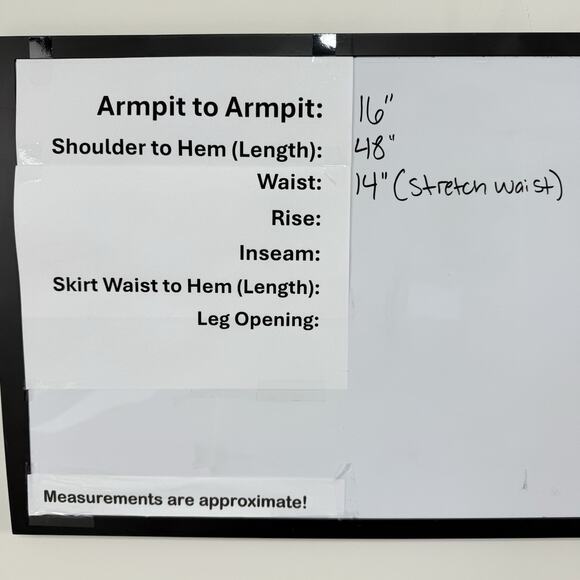 Armpit to Armpit: 16"
Shoulder to Hem (Length): 48"
Waist: 14" (stretch waist)
Rise:
Inseam:
Skirt Waist to Hem (Length):
Leg Opening:
Measurements are approximate!